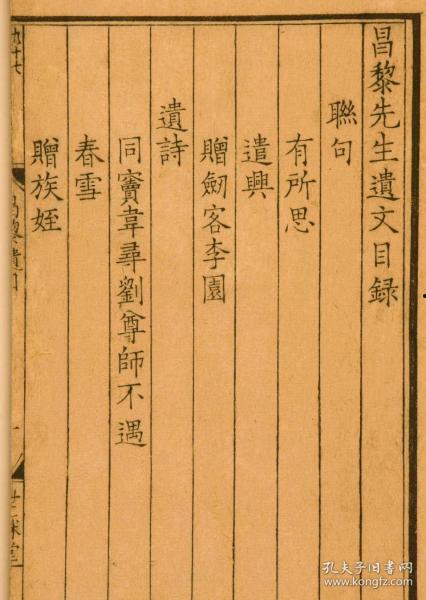 昌黎先生遺文目録
聯句
有所思
遣興
贈劒客李園
遺詩
同竇韋尋劉尊師不遇
春雪
贈族姪
九十七
世綵堂
孔夫子旧书网
www.kongfz.com